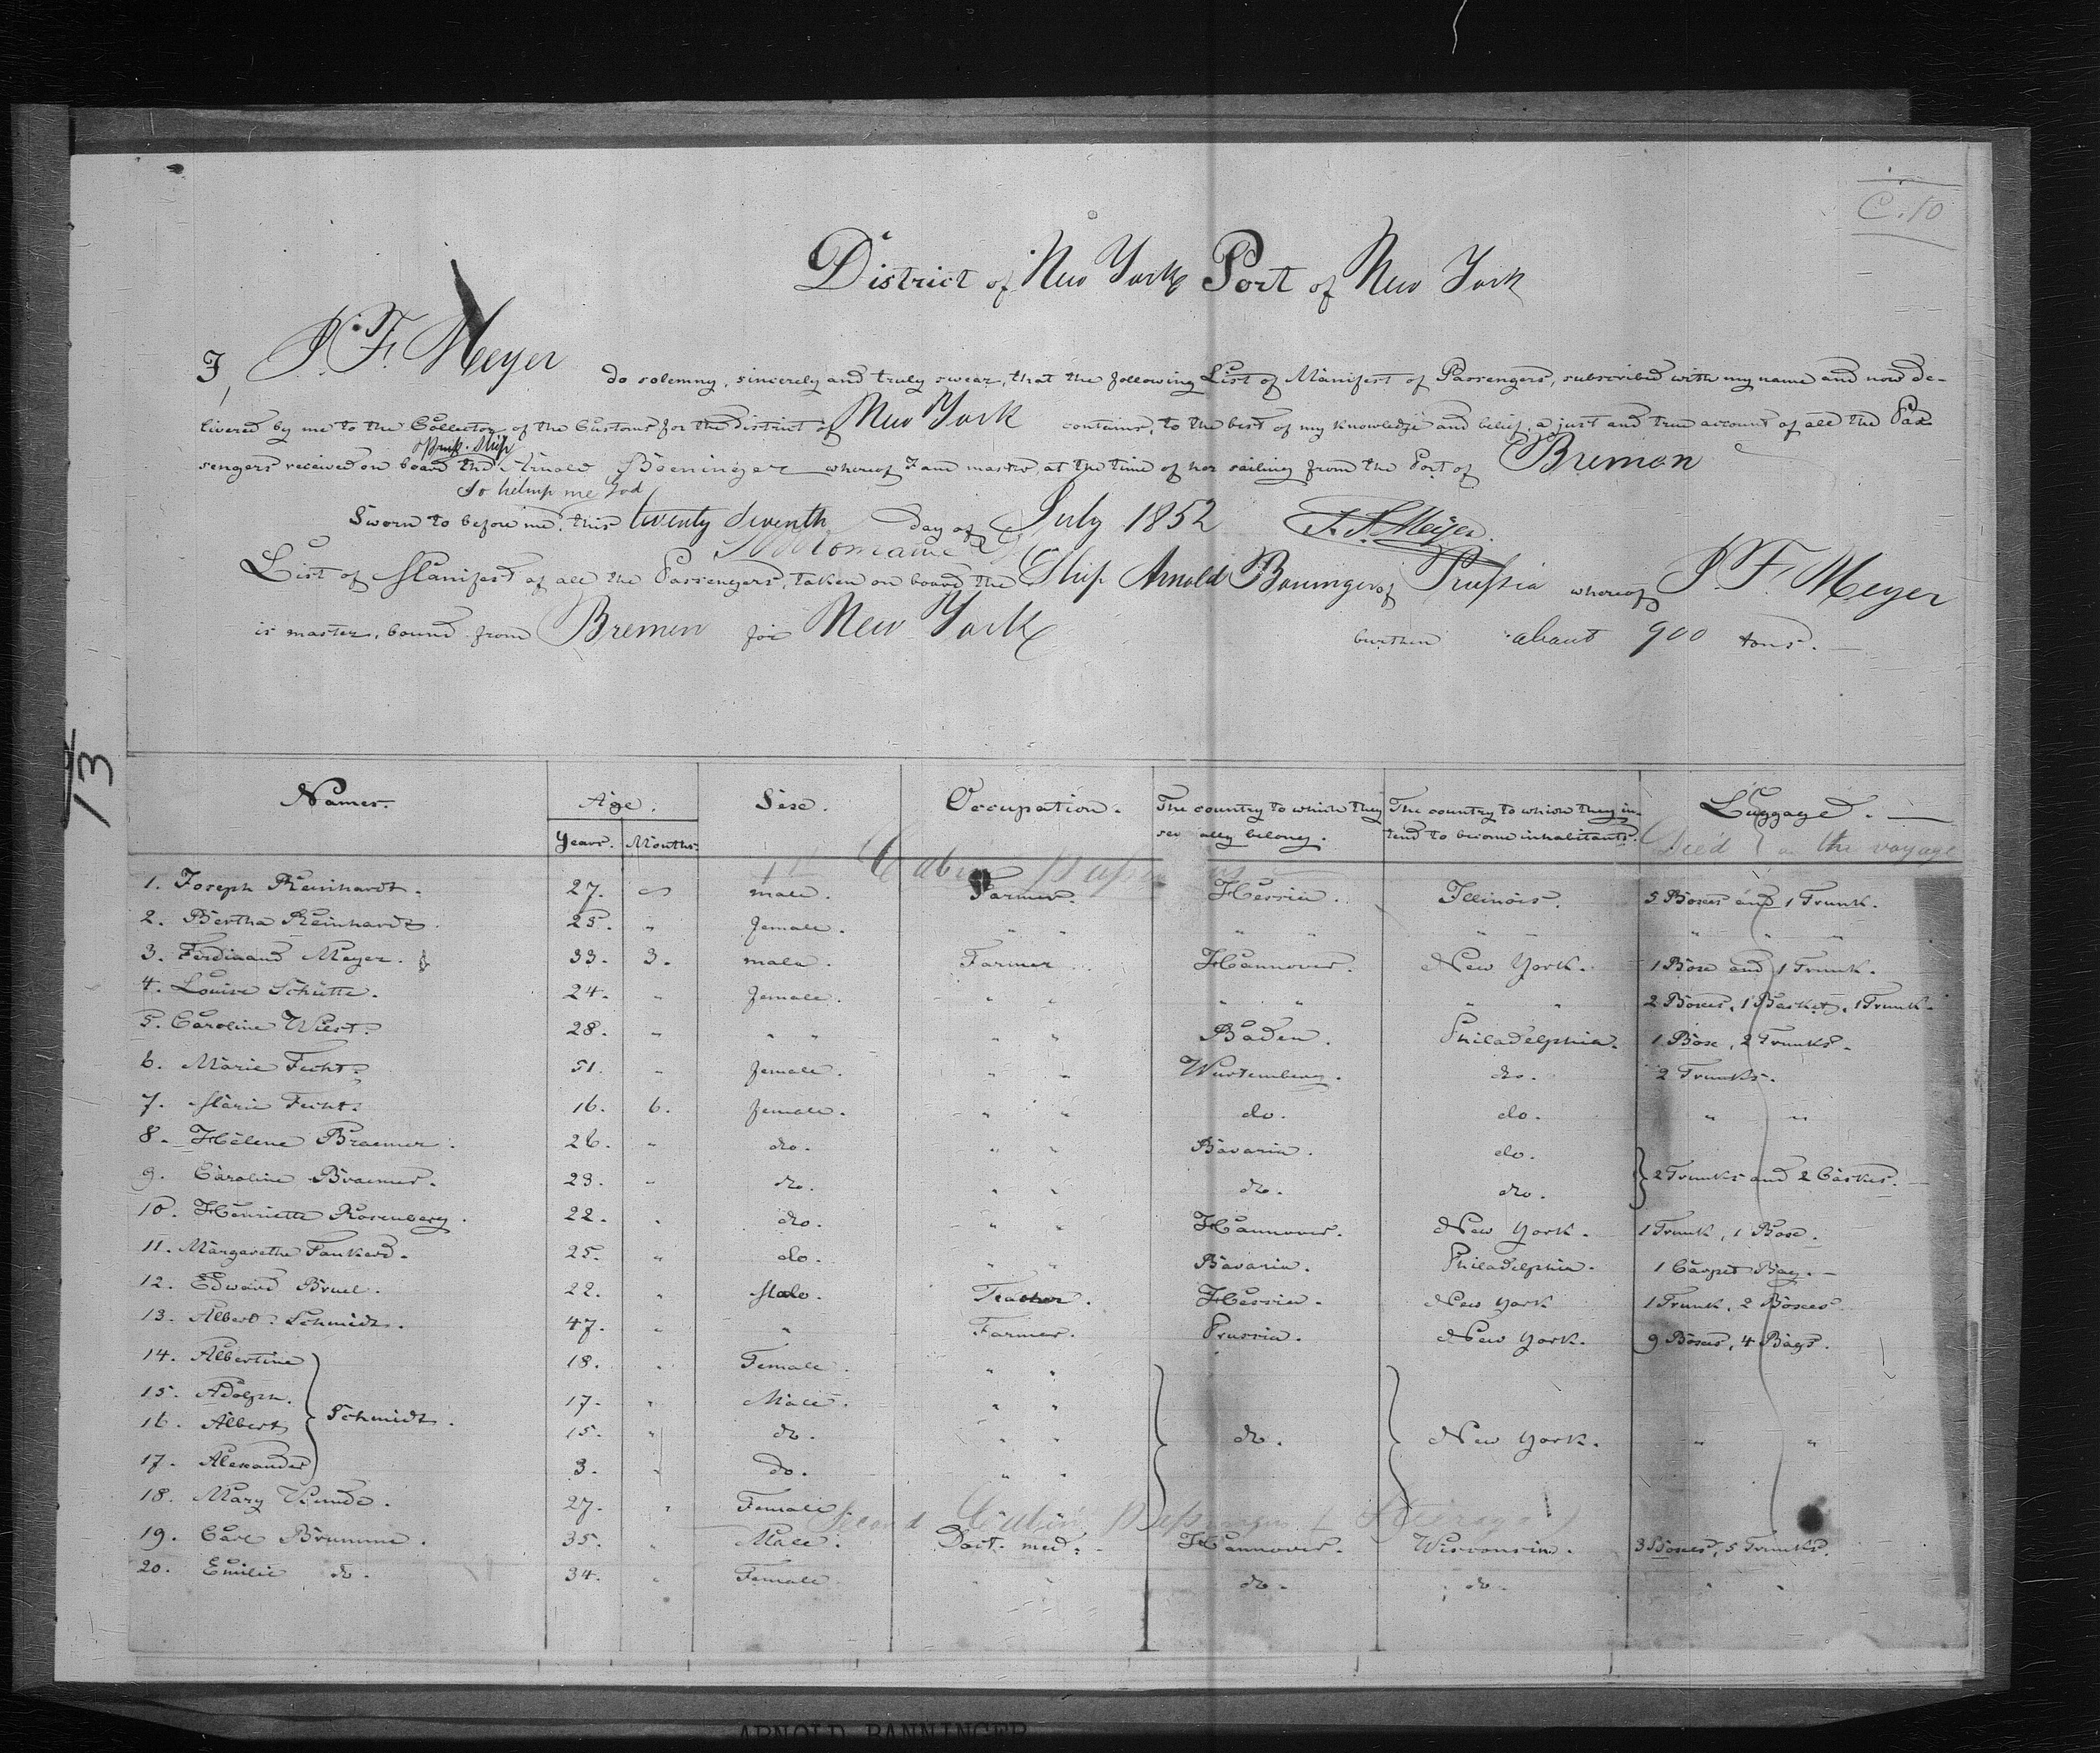 C. 10
District of New York Port of New York
I, J. F. Meyer do solemny, sincerely and truly swear, that the following List of Manifest of Passengers, subscribed with my name and now de-
livered by me to the Collector of the Customs for the district of New York contains, to the best of my knowledge and belief, a just and true account of all the Pas
sengers received on board the Ship Arnold Boeninger whereof I am master, at the time of her sailing from the Port of Bremen
So helmp me God
Sworn to before me, this twenty Seventh day of July 1852 J. F. Meyer.
List of Manifest of all the Passengers, taken on board the Ship Arnold Boninger of Prussia whereof J. F. Meyer
is master, bound from Bremen for New York burthen about 900 tons.
13
Names. Age. Sexe. Occupation. The country to which they severally belong. The country to which they intend to become inhabitants. Luggage.
Years. Months. Died on the voyage
1st Cabin Passengers
1. Joseph Reinhardt. 27. male. Farmer. Hessia. Illinois. 5 Boxes and 1 Trunk.
2. Bertha Reinhardt. 25. " female. " " " " " " " " "
3. Ferdinand Meyer. 33. 3. male. Farmer. Hannover. New York. 1 Boxe and 1 Trunk.
4. Louise Schütte. 24. " female. " " " " " " 2 Boxes, 1 Basket, 1 Trunk.
5. Caroline Wiest. 28. " " " " " Baden. Philadelphia. 1 Boxe, 2 Trunks.
6. Marie Fecht. 51. " female. " " Wurtemberg. do. 2 Trunks.
7. Marie Fecht. 16. 6. female. " " do. do. " "
8. Hélene Braemer. 26. " do. " " Bavaria. do.
9. Caroline Braemer. 23. " do. " " do. do. 2 Trunks and 2 Caskes.
10. Henriette Rosenberg. 22. " do. " " Hannover. New York. 1 Trunk, 1 Boxe.
11. Margarethe Fankerd. 25. " do. " " Bavaria. Philadelphia. 1 Carpet Bag.
12. Edward Bruel. 22. " Male. Teacher. Hessia. New York 1 Trunk, 2 Boxes.
13. Albert Schmidt. 47. " " Farmer. Prussia. New York. 9 Boxes, 4 Bags.
14. Albertine 18. " Female. " "
15. Adolph. 17. " Male. " "
16. Albert Schmidt. 15. " do. " " do. New York. " "
17. Alexander 3. " do. " "
18. Mary 27. " Female
Second Cabin Passengers (Steerage)
19. Carl Brumme. 35. " Male. Doct. med. Hannover. Wisconsin. 3 Boxes, 5 Trunks.
20. Emilie do. 34. " Female " " do. do. " "
ARNOLD BANNINGER